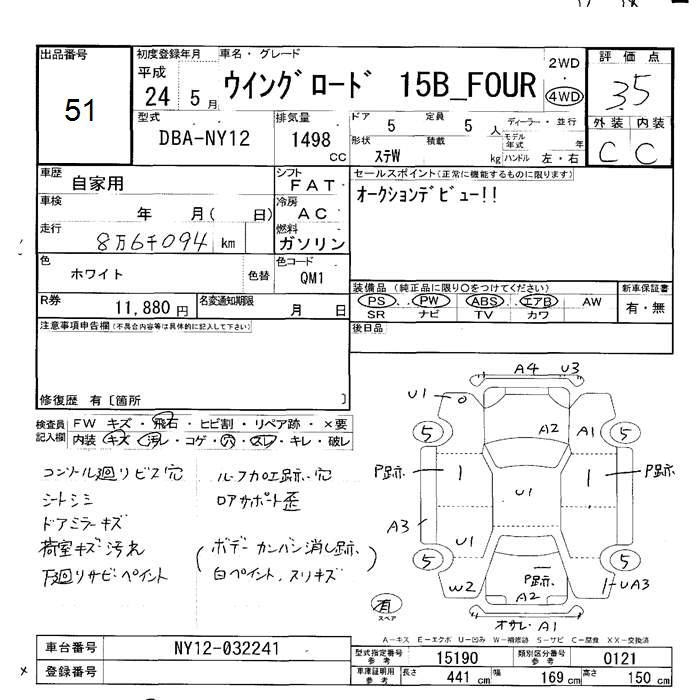 出品番号 初度登録年月 車名・グレード 2WD 評価点
51 平成 24 5月 ウイングロード 15B_FOUR ・ 4WD 3.5
型式 排気量 ドア 定員 ディーラー・並行 外装 内装
DBA-NY12 1498 CC 5 5人 モデル年式 年 C C
形状 積載
ステW kg ハンドル 左・右
車歴 自家用 シフト FAT セールスポイント(正常に機能するものに限ります)
車検 年 月( 日) 冷房 AC オークションデビュー!!
走行 8万6千094 km 燃料 ガソリン
色 ホワイト 色替 色コード QM1
装備品 (純正品に限り○をつけてください) 新車保証書
R券 11,880円 名変通知期限 月 日 PS・・PW ABS エアB AW 有・無
SR ナビ TV カワ
注意事項申告欄(不具合内容等は具体的に記入して下さい) 後日品
修復歴 有〔箇所 〕
検査員記入欄 FW キズ・飛石・ヒビ割・リペア跡・×要
内装 キズ・汚レ・コゲ・穴・スレ・キレ・破レ
コンソール廻リビス穴 ルーフカロエ跡・穴
シートシミ ロアサポート歪
ドアミラーキズ
荷室キズ・汚れ (ボデーカンバン消し跡、
下廻リサビ・ペイント 白ペイント、スリキズ)
A4 U3
U1
5 A2 A1 5
P跡 1 1 P跡
U1
A3
U1
5 5
W2 P跡 A2 UA3
有 スペア オサレ・A1
A-キス E-エクボ U-凹み W-補修跡 S-サビ C-腐食 XX-交換済
車台番号 NY12-032241 型式指定番号 参考 15190 類別区分番号 参考 0121
登録番号 車庫証明用 参考 長さ 441 cm 幅 169 cm 高さ 150 cm